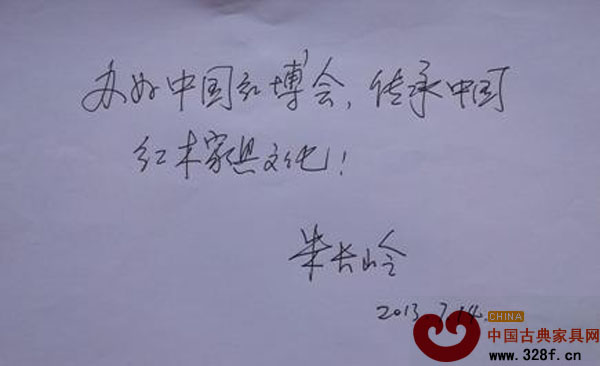 办好中国红博会，传承中国
红木家具文化！
朱长岭
2013.7.14.
CHINA
中国古典家具网
www.328f.cn